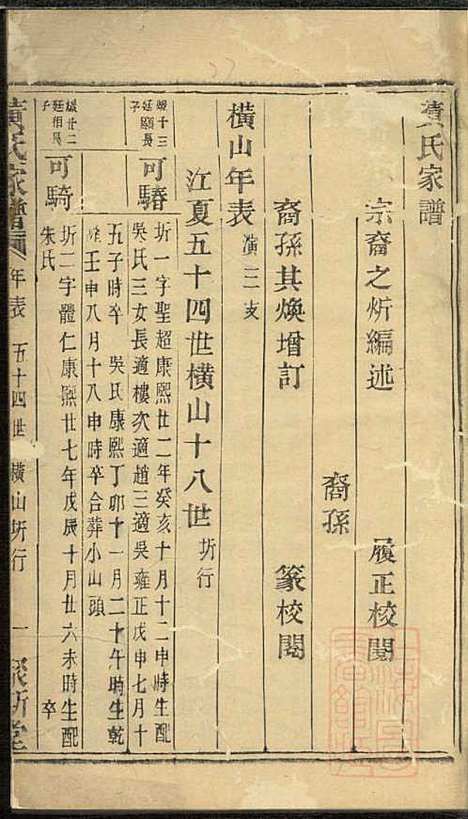 黄氏家譜
宗裔之炘編述
履正校閱
裔孫其煥增訂
裔孫
篆校閱
橫山年表
演二支
江夏五十四世橫山十八世
圻行
煥十三廷顯長子
可騎
圻一字聖超康熙廿二年癸亥十月十二申時生配
吳氏三女長適樓次適趙三適吳雍正戊申七月十
五子時卒 吳氏康熙丁卯十一月二十午時生乾
隆壬申八月十八申時卒合葬小山頭
廷相長子
可騎
圻二字體仁康熙廿七年戊辰十月廿六未時生配
朱氏
卒
黃氏家譜
年表
五十四世
橫山圻行
一